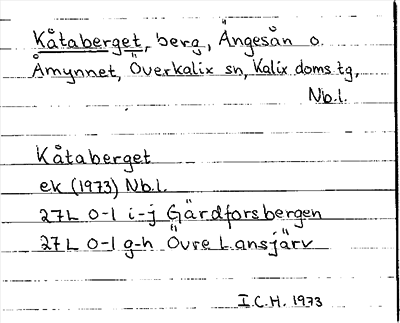 Kåtaberget, berg, Ängesån o.
Åmynnet, Överkalix sn, Kalix doms.tg,
Nb.l.
Kåtaberget
ek (1973) Nb.l.
27L 0-1 i-j Gärdforsbergen
27L 0-1 g-h Övre Lansjärv
I.C.H. 1973